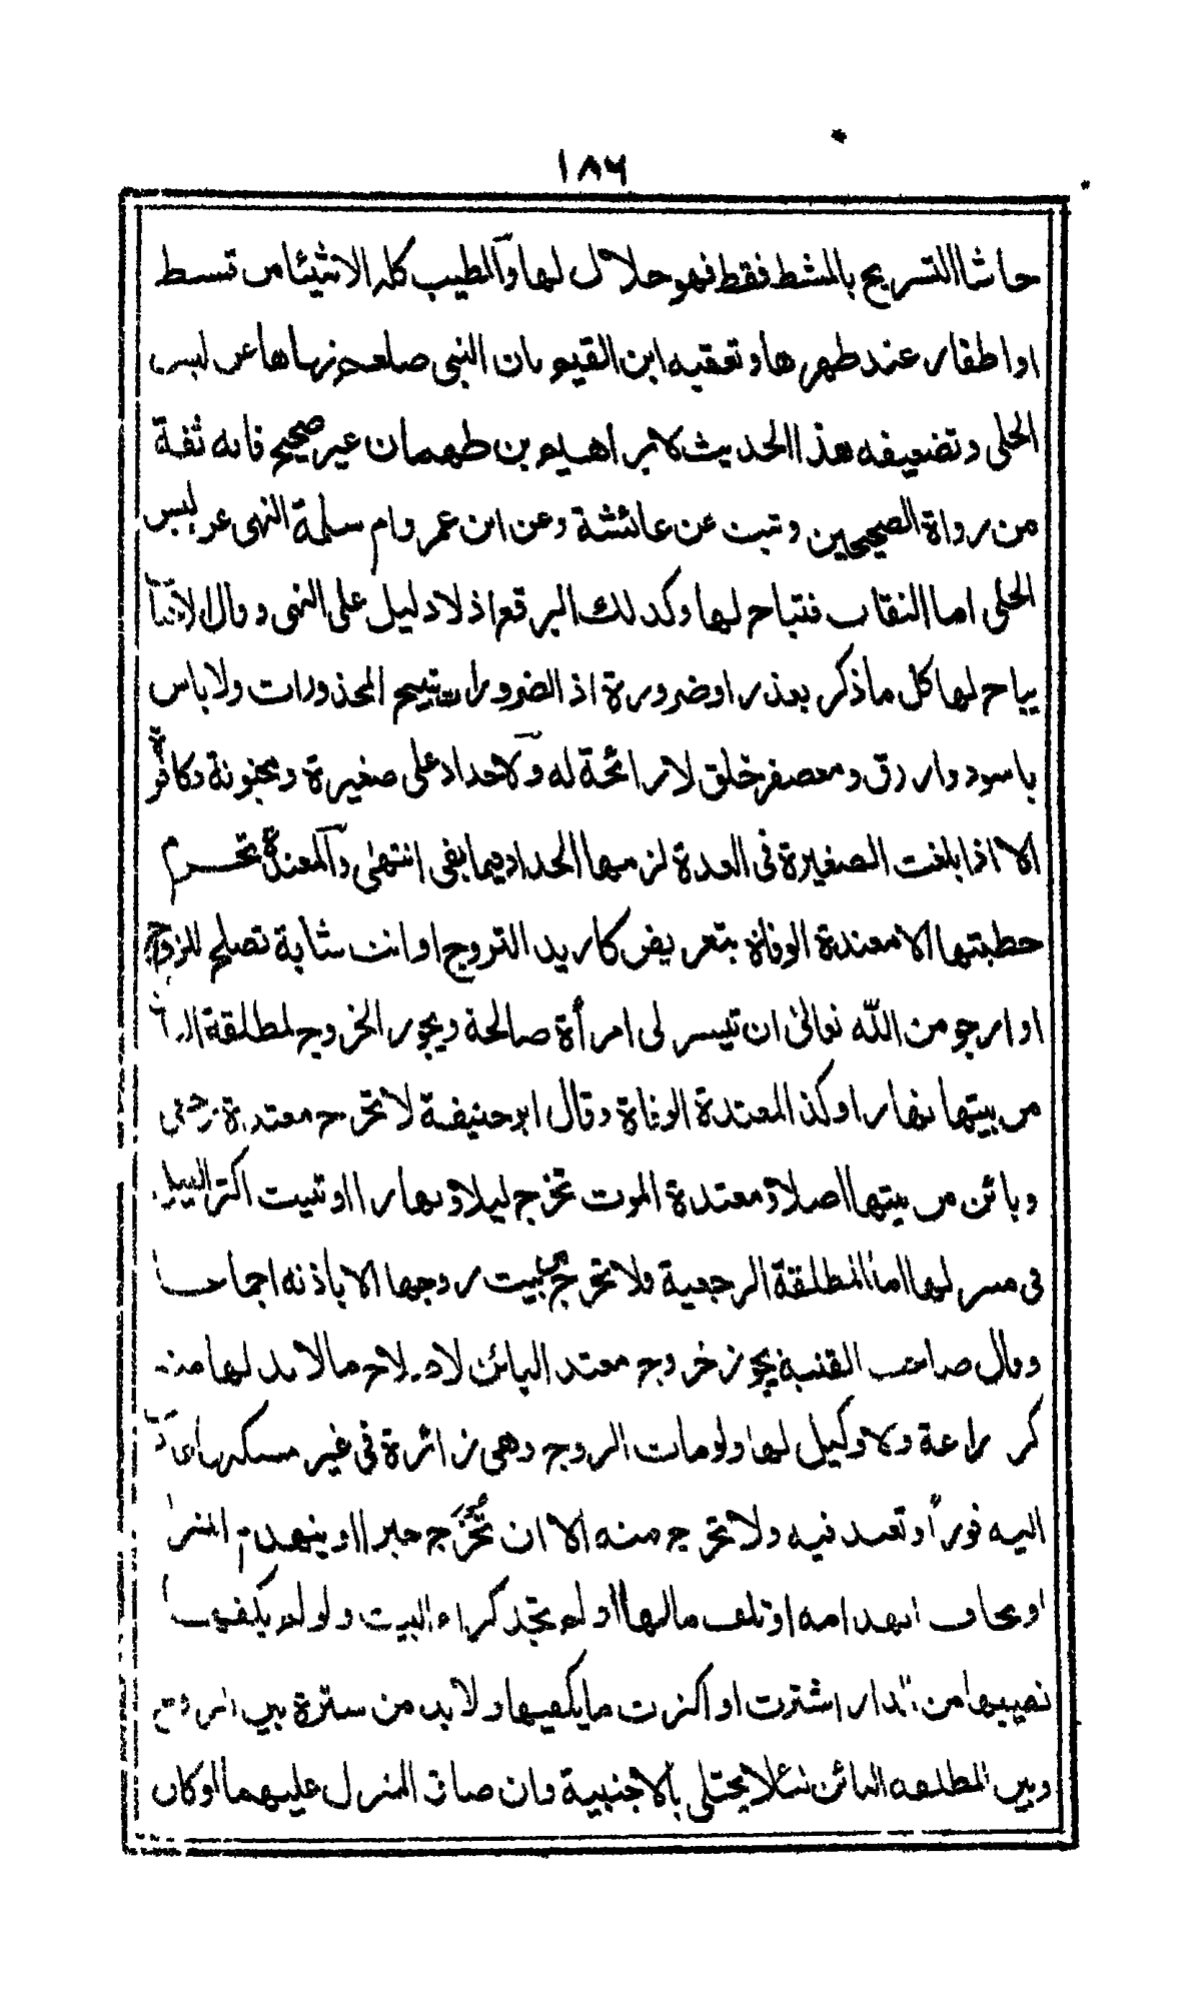 ١٨٦
حاشا التسريح بالمشط فقط فهو حلال لها والطيب كله الا شيئا من قسط
او اظفار عند طهرها وتعقبه ابن القيم بان النبى صلعم نهاها عن لبس
الحلى وتضعيفه هذا الحديث لابراهيم بن طهمان غير صحيح فانه ثقة
من رواة الصحيحين وثبت عن عائشة وعن ابن عمر وام سلمة النهى عن لبس
الحلى اما النقاب فتباح لها وكذلك البرقع اذ لا دليل على النهى وقال
يباح لها كل ما ذكر بعذر او ضرورة اذ الضرورات تبيح المحذورات ولا باس
باسود وازرق ومعصفر خلق لا رائحة له ولا حداد على صغيرة ومجنونة وكافرة
الا اذا بلغت الصغيرة فى العدة لزمها الحداد فيما بقى انتهى والمعتدة تحرم
خطبتها الا معتدة الوفاة بتعريض كاريد التزوج او انت شابة تصلح للزوج
او ارجو من الله تعالىٰ ان تيسر لى امرأة صالحة ويجوز الخروج لمطلقة
من بيتها نهارا وكذا المعتدة الوفاة وقال ابو حنيفة لا تخرج معتدة رجعى
وبائن من بيتها اصلا ومعتدة الموت تخرج ليلا ونهارا او تبيت اكثر الليل
فى منزلها اما المطلقة الرجعية فلا تخرج من بيت زوجها الا باذنه اجماعا
وقال صاحب القنية يجوز خروج معتد البائن لاصلاح ما لابد لها منه
كزراعة ولا وكيل لها ولو مات الزوج وهى زائرة فى غير مسكنها
اليه فورًا وتعتد فيه ولا تخرج منه الا ان تُخْرَج جبرا او ينهدم المنزل
او يخاف انهدامه او تلف مالها او لم تجد كراء البيت ولو لم يكفيها
نصيبها من الدار اشترت او اكترت ما يكفيها ولابد من سترة بين الزوج
وبين المطلقة البائن لئلا يختلى بالاجنبية وان ضاق المنزل عليهما او كان